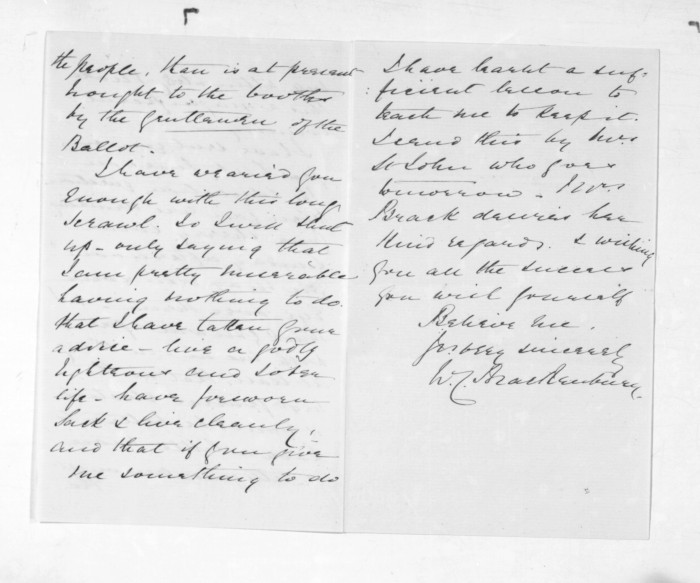 the people, than is at present
nought to the booths
by the gentlemen of the
Ballot.
I have wearied you
enough with this long
scrawl. So I will shut
up - only saying that
I am pretty miserable
having nothing to do.
that I have taken your
advice - live a godly
righteous and sober
life - have forsworn
Sack & live cleanly,
and that if you give
me something to do
I have learnt a suf-
ficient lesson to
teach me to keep it.
I send this by Mrs
St John who goes
tomorrow. Mrs
Brack desires her
kind regards. & wishing
you all the success
you wish yourself
Believe me.
Yrs very sincerely
W. C. Brackenbury.